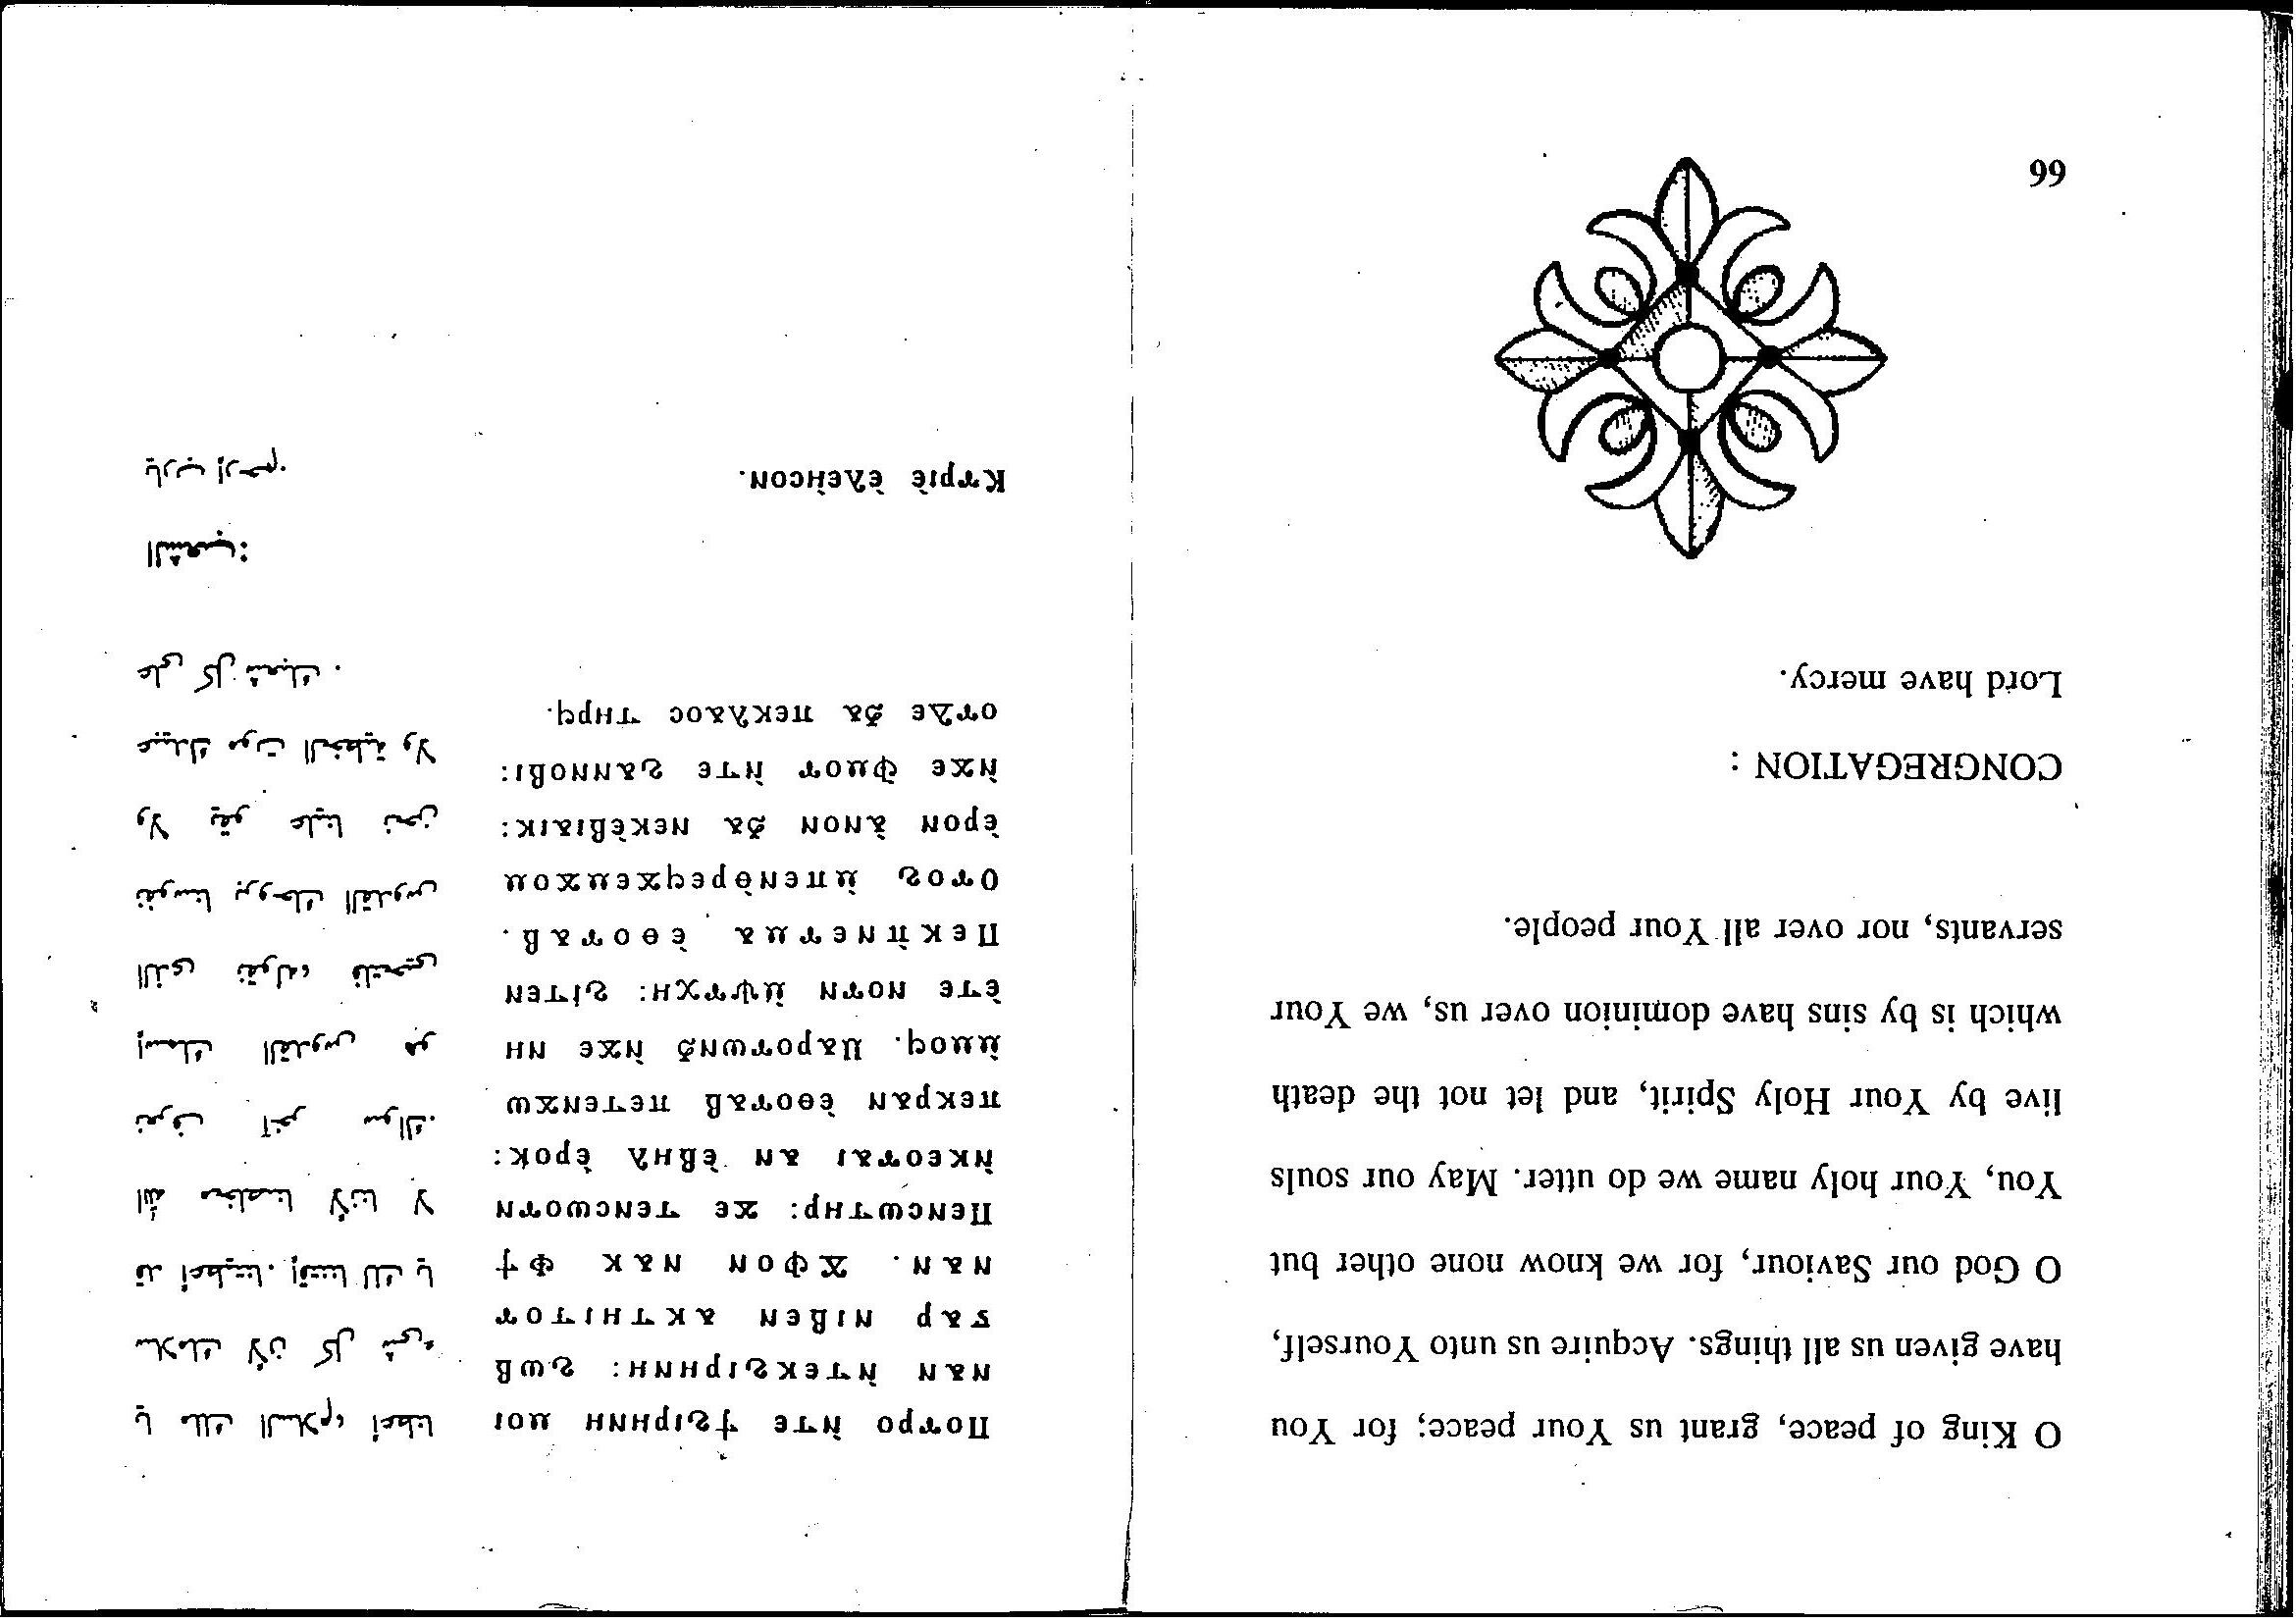 O King of peace, grant us Your peace; for You
have given us all things. Acquire us unto Yourself,
O God our Saviour, for we know none other but
You, Your holy name we do utter. May our souls
live by Your Holy Spirit, and let not the death
which is by sins have dominion over us, we Your
servants, nor over all Your people.
CONGREGATION :
Lord have mercy.
66
Ⲡⲟⲩⲣⲟ ⲛ̀ⲧⲉ ϯϩⲓⲣⲏⲛⲏ ⲙⲟⲓ
ⲛⲁⲛ ⲛ̀ⲧⲉⲕϩⲓⲣⲏⲛⲏ: ϩⲱⲃ
ⲅⲁⲣ ⲛⲓⲃⲉⲛ ⲁⲕⲧⲏⲓⲧⲟⲩ
ⲛⲁⲛ. Ϫⲫⲟⲛ ⲛⲁⲕ Ⲫϯ
Ⲡⲉⲛⲥⲱⲧⲏⲣ: ϫⲉ ⲧⲉⲛⲥⲱⲟⲩⲛ
ⲛ̀ⲕⲉⲟⲩⲁⲓ ⲁⲛ ⲉ̀ⲃⲏⲗ ⲉ̀ⲣⲟⲕ:
ⲡⲉⲕⲣⲁⲛ ⲉ̀ⲑⲟⲩⲁⲃ ⲡⲉⲧⲉⲛϫⲱ
ⲙ̀ⲙⲟϥ. Ⲙⲁⲣⲟⲩⲱⲛϧ ⲛ̀ϫⲉ ⲛⲏ
ⲉ̀ⲧⲉ ⲛⲟⲩⲛ ⲙ̀ⲯⲩⲭⲏ: ϩⲓⲧⲉⲛ
Ⲡⲉⲕⲡ̀ⲛⲉⲩⲙⲁ ⲉ̀ⲑⲟⲩⲁⲃ.
Ⲟⲩⲟϩ ⲙ̀ⲡⲉⲛⲑ̀ⲣⲉϥϫⲉⲙϫⲟⲙ
ⲉ̀ⲣⲟⲛ ⲁ̀ⲛⲟⲛ ϧⲁ ⲛⲉⲕⲉ̀ⲃⲓⲁⲓⲕ:
ⲛ̀ϫⲉ ⲫⲙⲟⲩ ⲛ̀ⲧⲉ ϩⲁⲛⲛⲟⲃⲓ:
ⲟⲩⲇⲉ ϧⲁ ⲡⲉⲕⲗⲁⲟⲥ ⲧⲏⲣϥ.
Ⲕⲩⲣⲓⲉ̀ ⲉ̀ⲗⲉⲏ̀ⲥⲟⲛ.
يا ملك السلام، أعطنا
سلامك لأن كل شىء
قد أعطيتنا. إقتننا لك يا
الله مخلصنا لأننا لا
نعرف آخر سواك.
إسمك القدوس هو
الذى نقوله، فلتحيى
نفوسنا بروحك القدوس
ولا يقو علينا نحن
عبيدك موت الخطية ولا
على كل شعبك.
الشعب:
يارب إرحم.